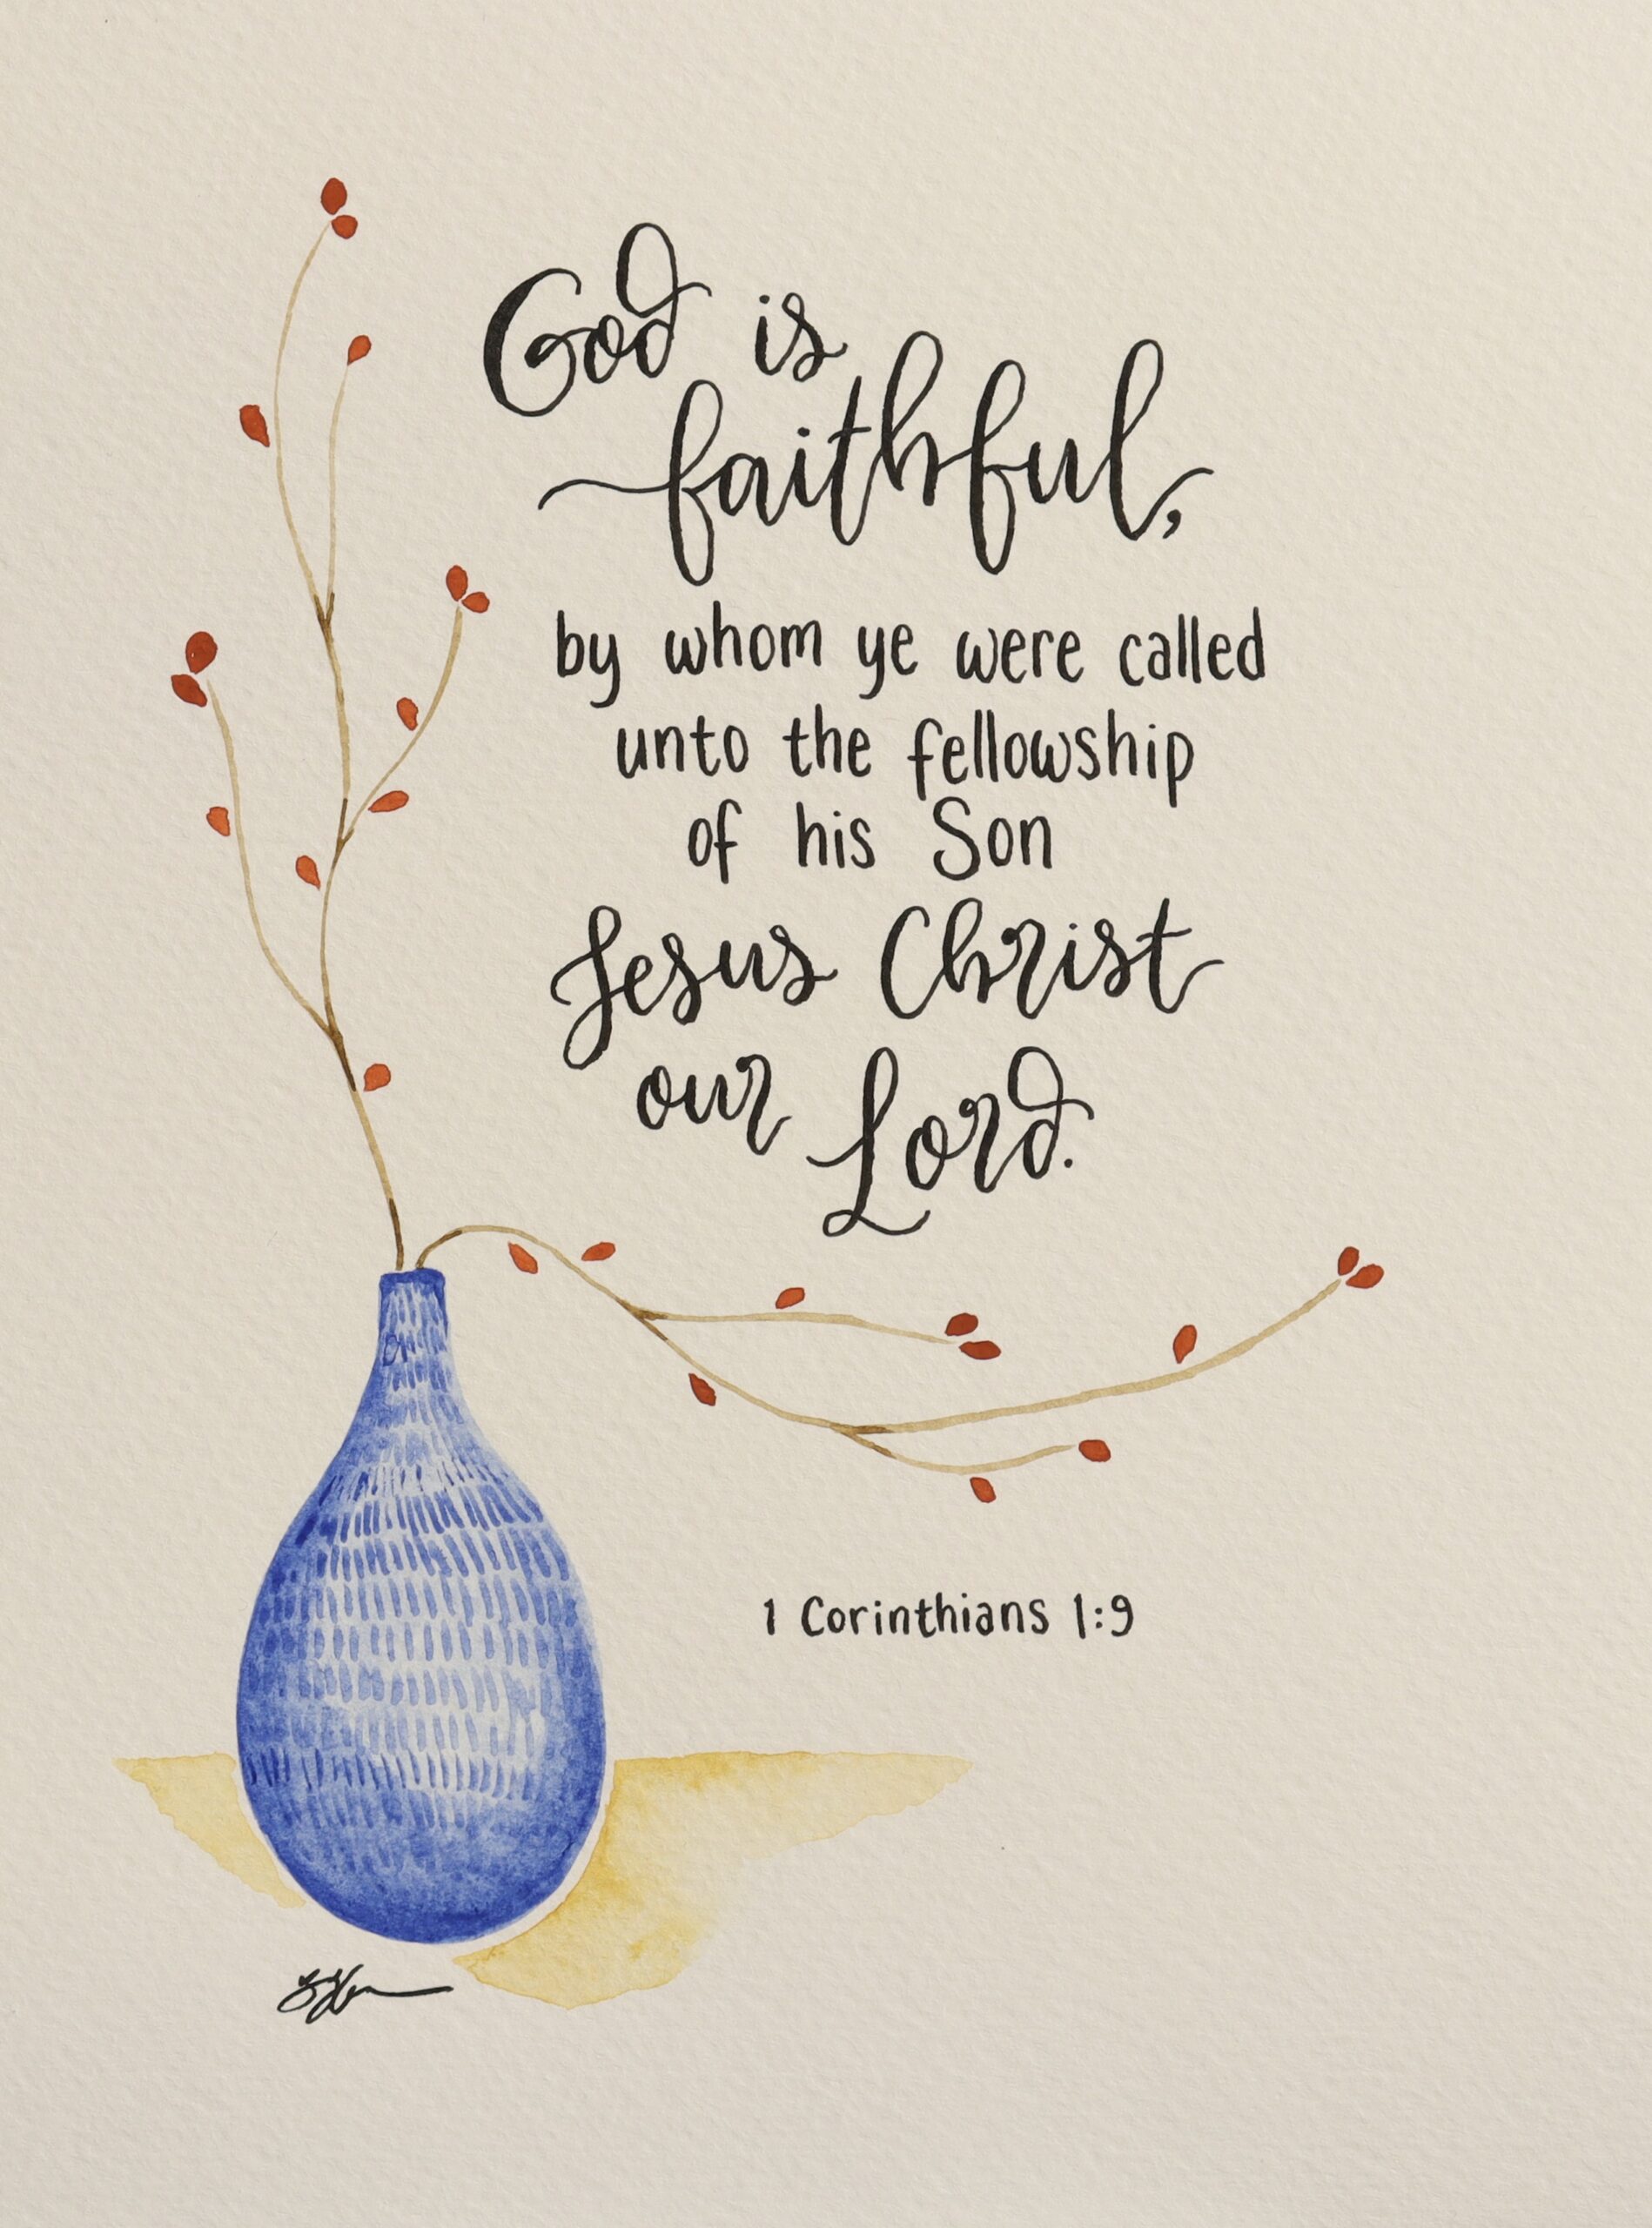 God is
faithful,
by whom ye were called
unto the fellowship
of his Son
Jesus Christ
our Lord.
1 Corinthians 1:9